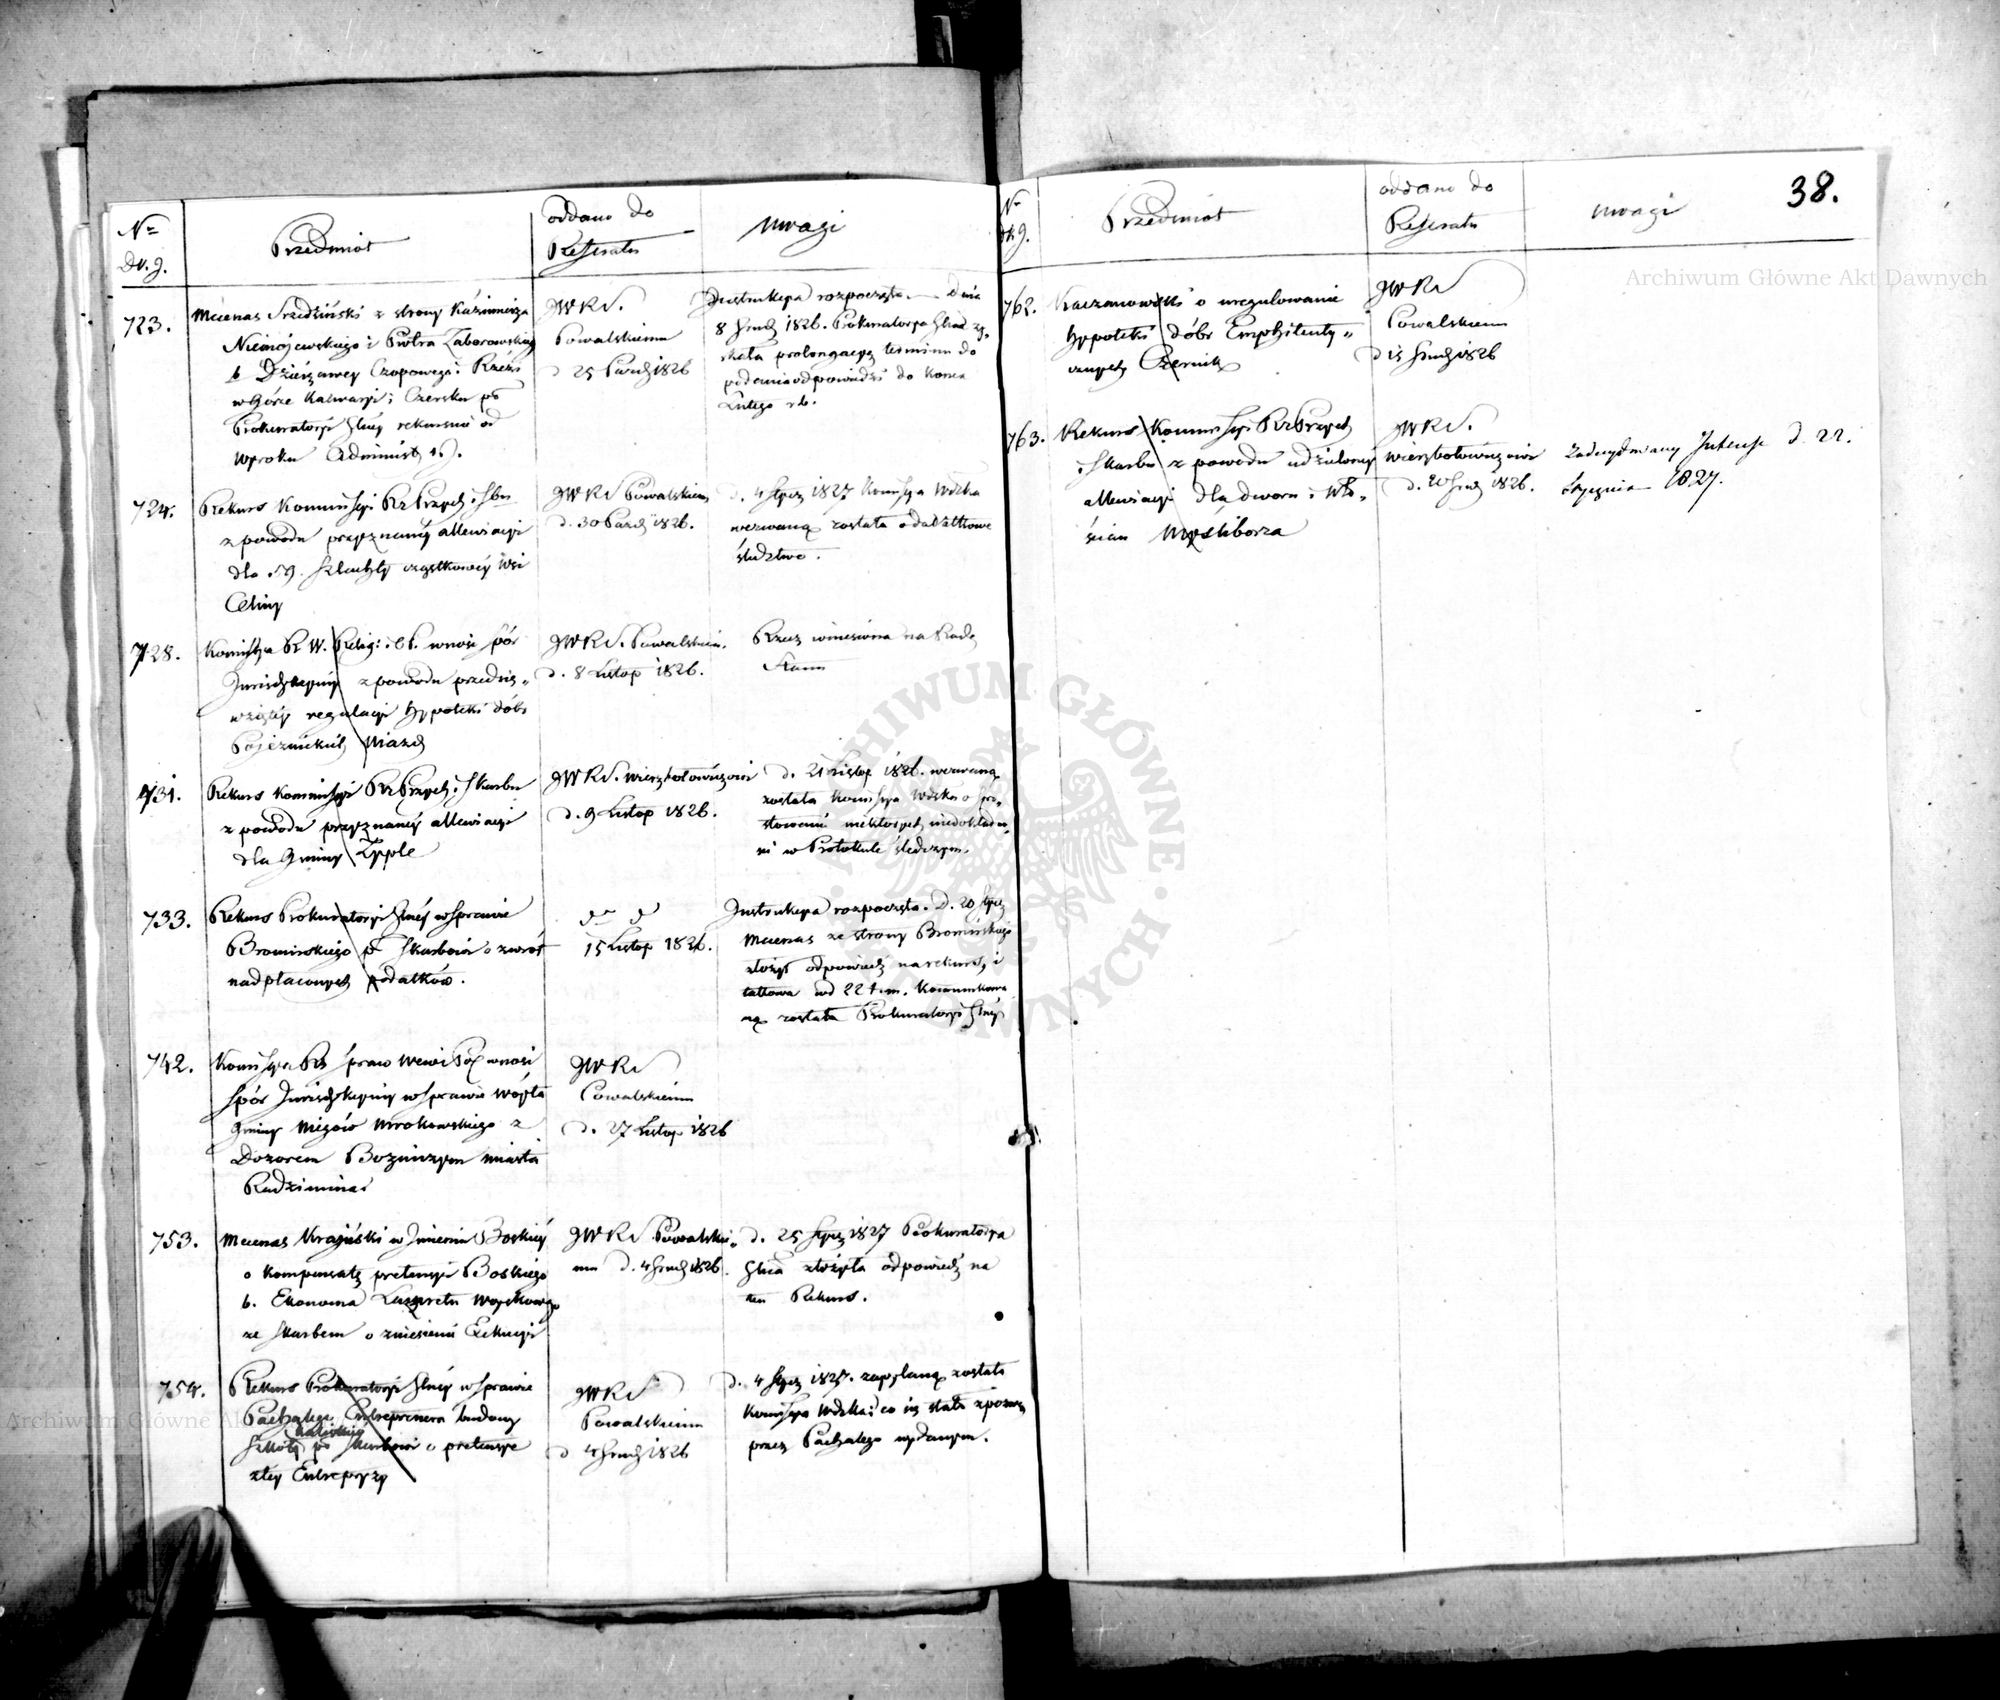 Nro
Dz. g.
Przedmiot
oddano do
Referatu
Uwagi
723.
Mecenas Srzedziński z strony Kazimierza
Niemojewskiego i Piotra Zaborowskiego
b Dzierżawcy Czopowego i Rzezi
w Górze Kalwaryi i Czersku po
Prokuratoryi Glney rekursuie od
wyroku
JWRS.
Powalskiemu
d 25 Pazd 1826
Instrukcya rozpoczęta dnia
8 Grud 1826. Prokuratorya Glna zy-
skała prolongacyą terminu do
podania odpowiedzi do końca
Lutego rb.
724.
Rekurs Kommissyi Rz Przych i Sbu
z powodu przyznaney allewiacyi
dla 59. Szlachty cząstkowey wsi
Celiny
JWRS Powalskiem
d. 30 Pazd 1826.
d. 4 Stycz 1827 Komissya Wdzka
wezwaną została o dodatkowe
śledztwo.
728.
Komissya R W. Relig: i O P. wnosi spór
Jurisdykcyiny z powodu przedsię-
wziętey regulacyi hypoteki dóbr
Pojezuickich Miazd
JWRS. Powalskiem.
d. 8 Listop 1826.
Rzecz wniesiona na Radę
Stanu
731.
Rekurs Kommissyi Rz Przych i Skarbu
z powodu przyznaney allewiacyi
dla Gminy Lipple
JWRS. Wierzbołowiczowi
d. 9 Listop 1826.
d. 21 Listop 1826. wezwaną
została Komissya Wdzka o spro-
stowanie niektórych niedokładno-
ści w Protokule śledczym.
733.
Rekurs Prokuratoryi Glney w sprawie
Bromirskiego po Skarbowi o zwrot
nadpłaconych podatków.
do do
15 Listop 1826.
Instrukcya rozpoczęta. d. 20 Stycz
Mecenas ze strony Bromirskiego
złożył odpowiedź na rekurs, i
takowa w d 22 t. m. kommunikowa
ną została Prokuratoryi Glney
742.
Komissya Rz Spraw Wew i Pol wnosi
spór Jurisdykcyiny w sprawie Wóyta
Gminy Mrokowskiego z
Dozorem Bożniczym miasta
Radzimina
JWRS
Powalskiemu
d. 27 Listop 1826
753.
Mecenas Krajński w Imieniu Boskiey
o kompensatę pretensyi Boskiego
b. Ekonoma Lazaretu Woyskowego
ze Skarbem o zniesienie Exekucyi
JWRS Powalskie-
mu d. 4 Grud 1826.
d. 25 Stycz 1827 Prokuratorya
Glna złożyła odpowiedź na
ten Rekurs.
754.
Rekurs Prokuratoryi Glney w sprawie
Pachalego Entreprenera budowy
Szkoły po Skarbowi o pretensye
z tey Entrepryzy
JWRS
Powalskiemu
d 4 Grud 1826
d. 4 Stycz 1827. zapytaną została
Komissya Wdzka: co się stało
przez Pachalego wydanym.
38.
Nro
Dz. g.
Przedmiot
oddano do
Referatu
Uwagi
762.
Kaczanowski o uregulowanie
hypoteki dóbr Emphiteuty-
cznych Czernik
JWRS
Powalskiemu
d 15 Grud 1826
763.
Rekurs Kommissyi Rz Przych
i Skarbu z powodu udzieloney
allewiacyi dla dworu i wło-
ścian Myśliborza
JWRS.
Wierzbołowiczowi
d. 20 Grud 1826.
Zadecydowany d. 22.
Stycznia 1827.
Archiwum Główne Akt Dawnych
Archiwum Główne Akt Dawnych
ARCHIWUM GŁÓWNE AKT DAWNYCH